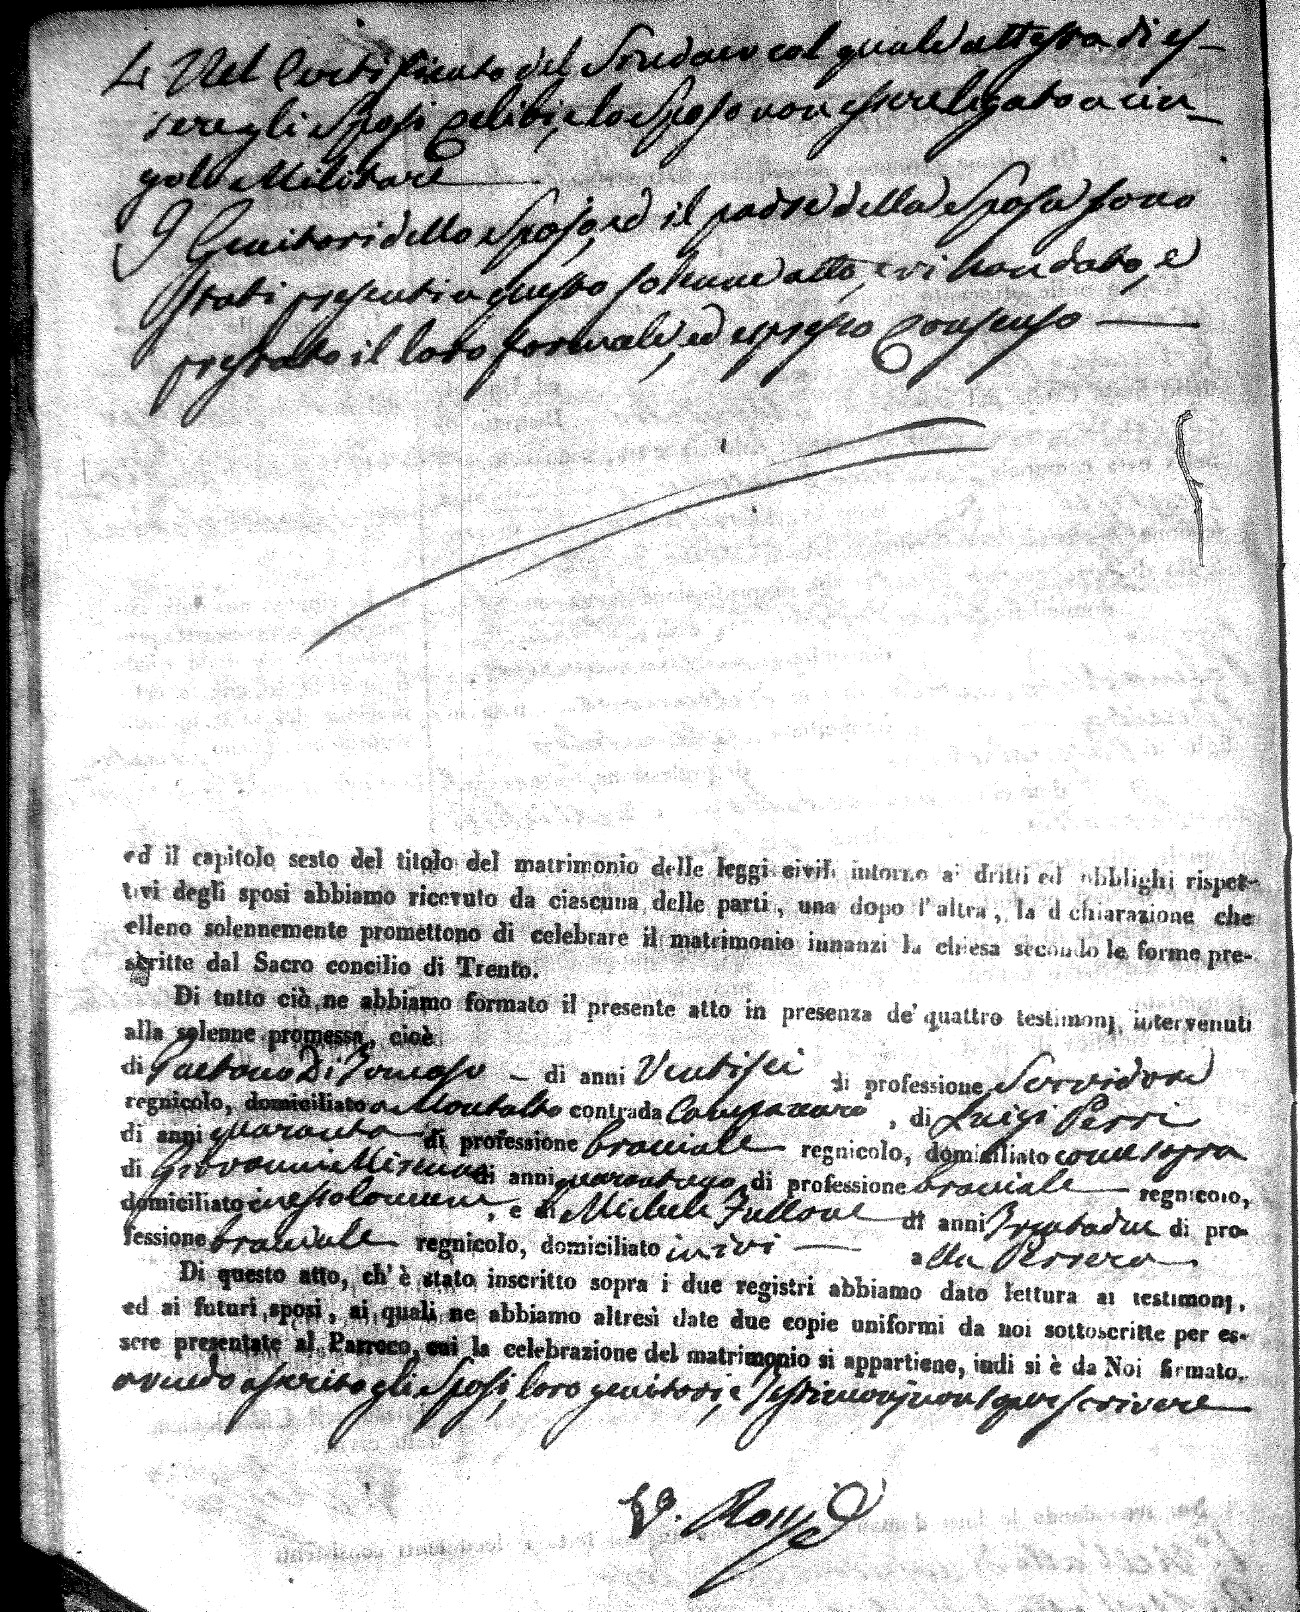 4. Nel Certificato del Sindaco col quale attesta di es-
sere gli Sposi celibi, e lo Sposo non essere legato a cin-
golo Militare
I Genitori dello Sposo, ed il padre della Sposa sono
stati presenti a questo solenne atto, e vi han dato, e
prestato il loro formale, ed espresso Consenso
ed il capitolo sesto del titolo del matrimonio delle leggi civili intorno ai dritti ed obblighi rispet-
tivi degli sposi abbiamo ricevuto da ciascuna delle parti, una dopo l'altra, la dichiarazione che
elleno solennemente promettono di celebrare il matrimonio innanzi la chiesa secondo le forme pre-
scritte dal Sacro concilio di Trento.
Di tutto ciò ne abbiamo formato il presente atto in presenza de' quattro testimonj, intervenuti
alla solenne promessa, cioè
di Gaetano Di Tomaso di anni Ventisei di professione Servidore
regnicolo, domiciliato a Montalto contrada , di Luigi Perri
di anni quaranta di professione bracciale regnicolo, domiciliato come sopra
di Giovanni di anni di professione bracciale regnicolo,
domiciliato , e di Michele Fullone di anni Trentadue di pro-
fessione bracciale regnicolo, domiciliato in ivi alla
Di questo atto, ch' è stato inscritto sopra i due registri abbiamo dato lettura ai testimonj,
ed ai futuri sposi, ai quali ne abbiamo altresì date due copie uniformi da noi sottoscritte per es-
sere presentate al Parroco, cui la celebrazione del matrimonio si appartiene, indi si è da Noi firmato,
avendo asserito gli Sposi, loro genitori, e Testimonj non saper scrivere
Rossi